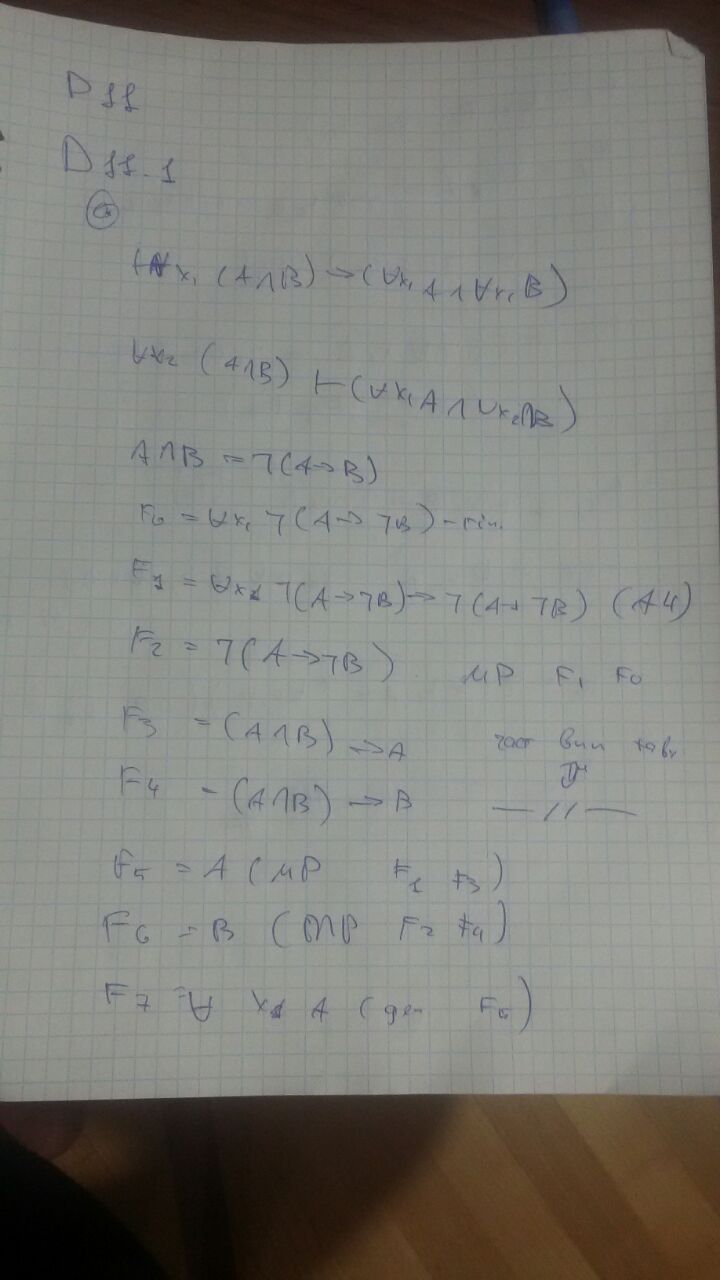 D 11
D 11.1
а
⊢∀x₁ (A∧B) → (∀x₁ A ∧ ∀x₁ B)
∀x₂ (A∧B) ⊢ (∀x₁ A ∧ ∀x₂ B)
A∧B = ¬(A→B)
F₀ = ∀x₁ ¬(A→¬B) –
F₁ = ∀x₁ ¬(A→¬B) → ¬(A→¬B) (A4)
F₂ = ¬(A→¬B) MP F₁ F₀
F₃ = (A∧B) → A
F₄ – (A∧B) → B —//—
F₅ = A (MP F₂ F₃)
F₆ = B (MP F₂ F₄)
F₇ = ∀ x₁ A (ген F₅)